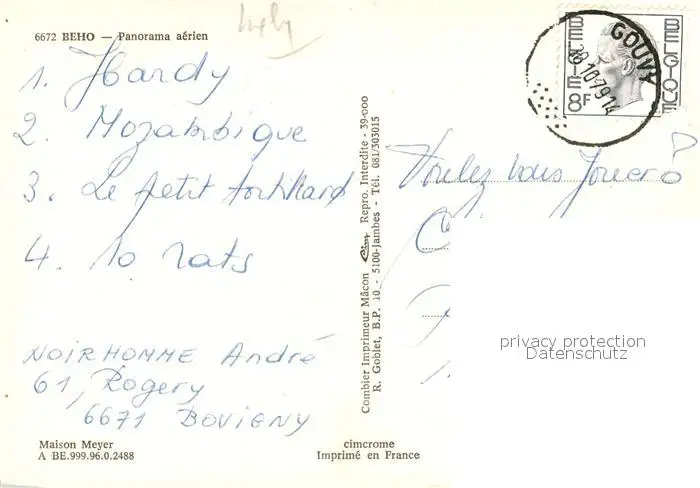 6672 BEHO — Panorama aérien
1. Hardy
2. Mozambique
3. Le petit tortillard
4. 10 rats
NOIRHOMME André
61, Rogery
6671 BOVIGNY
Maison Meyer
A BE.999.96.0.2488
cimcrome
Imprimé en France
Combier Imprimeur Mâcon Cim Repro. Interdite - 39-000
R. Goblet, B.P. 10 - 5100-Jambes - Tél. 081/303015
BELGIQUE
BELGIE 8F
GOUVY
10-79 14
Voulez vous jouer?
privacy protection
Datenschutz